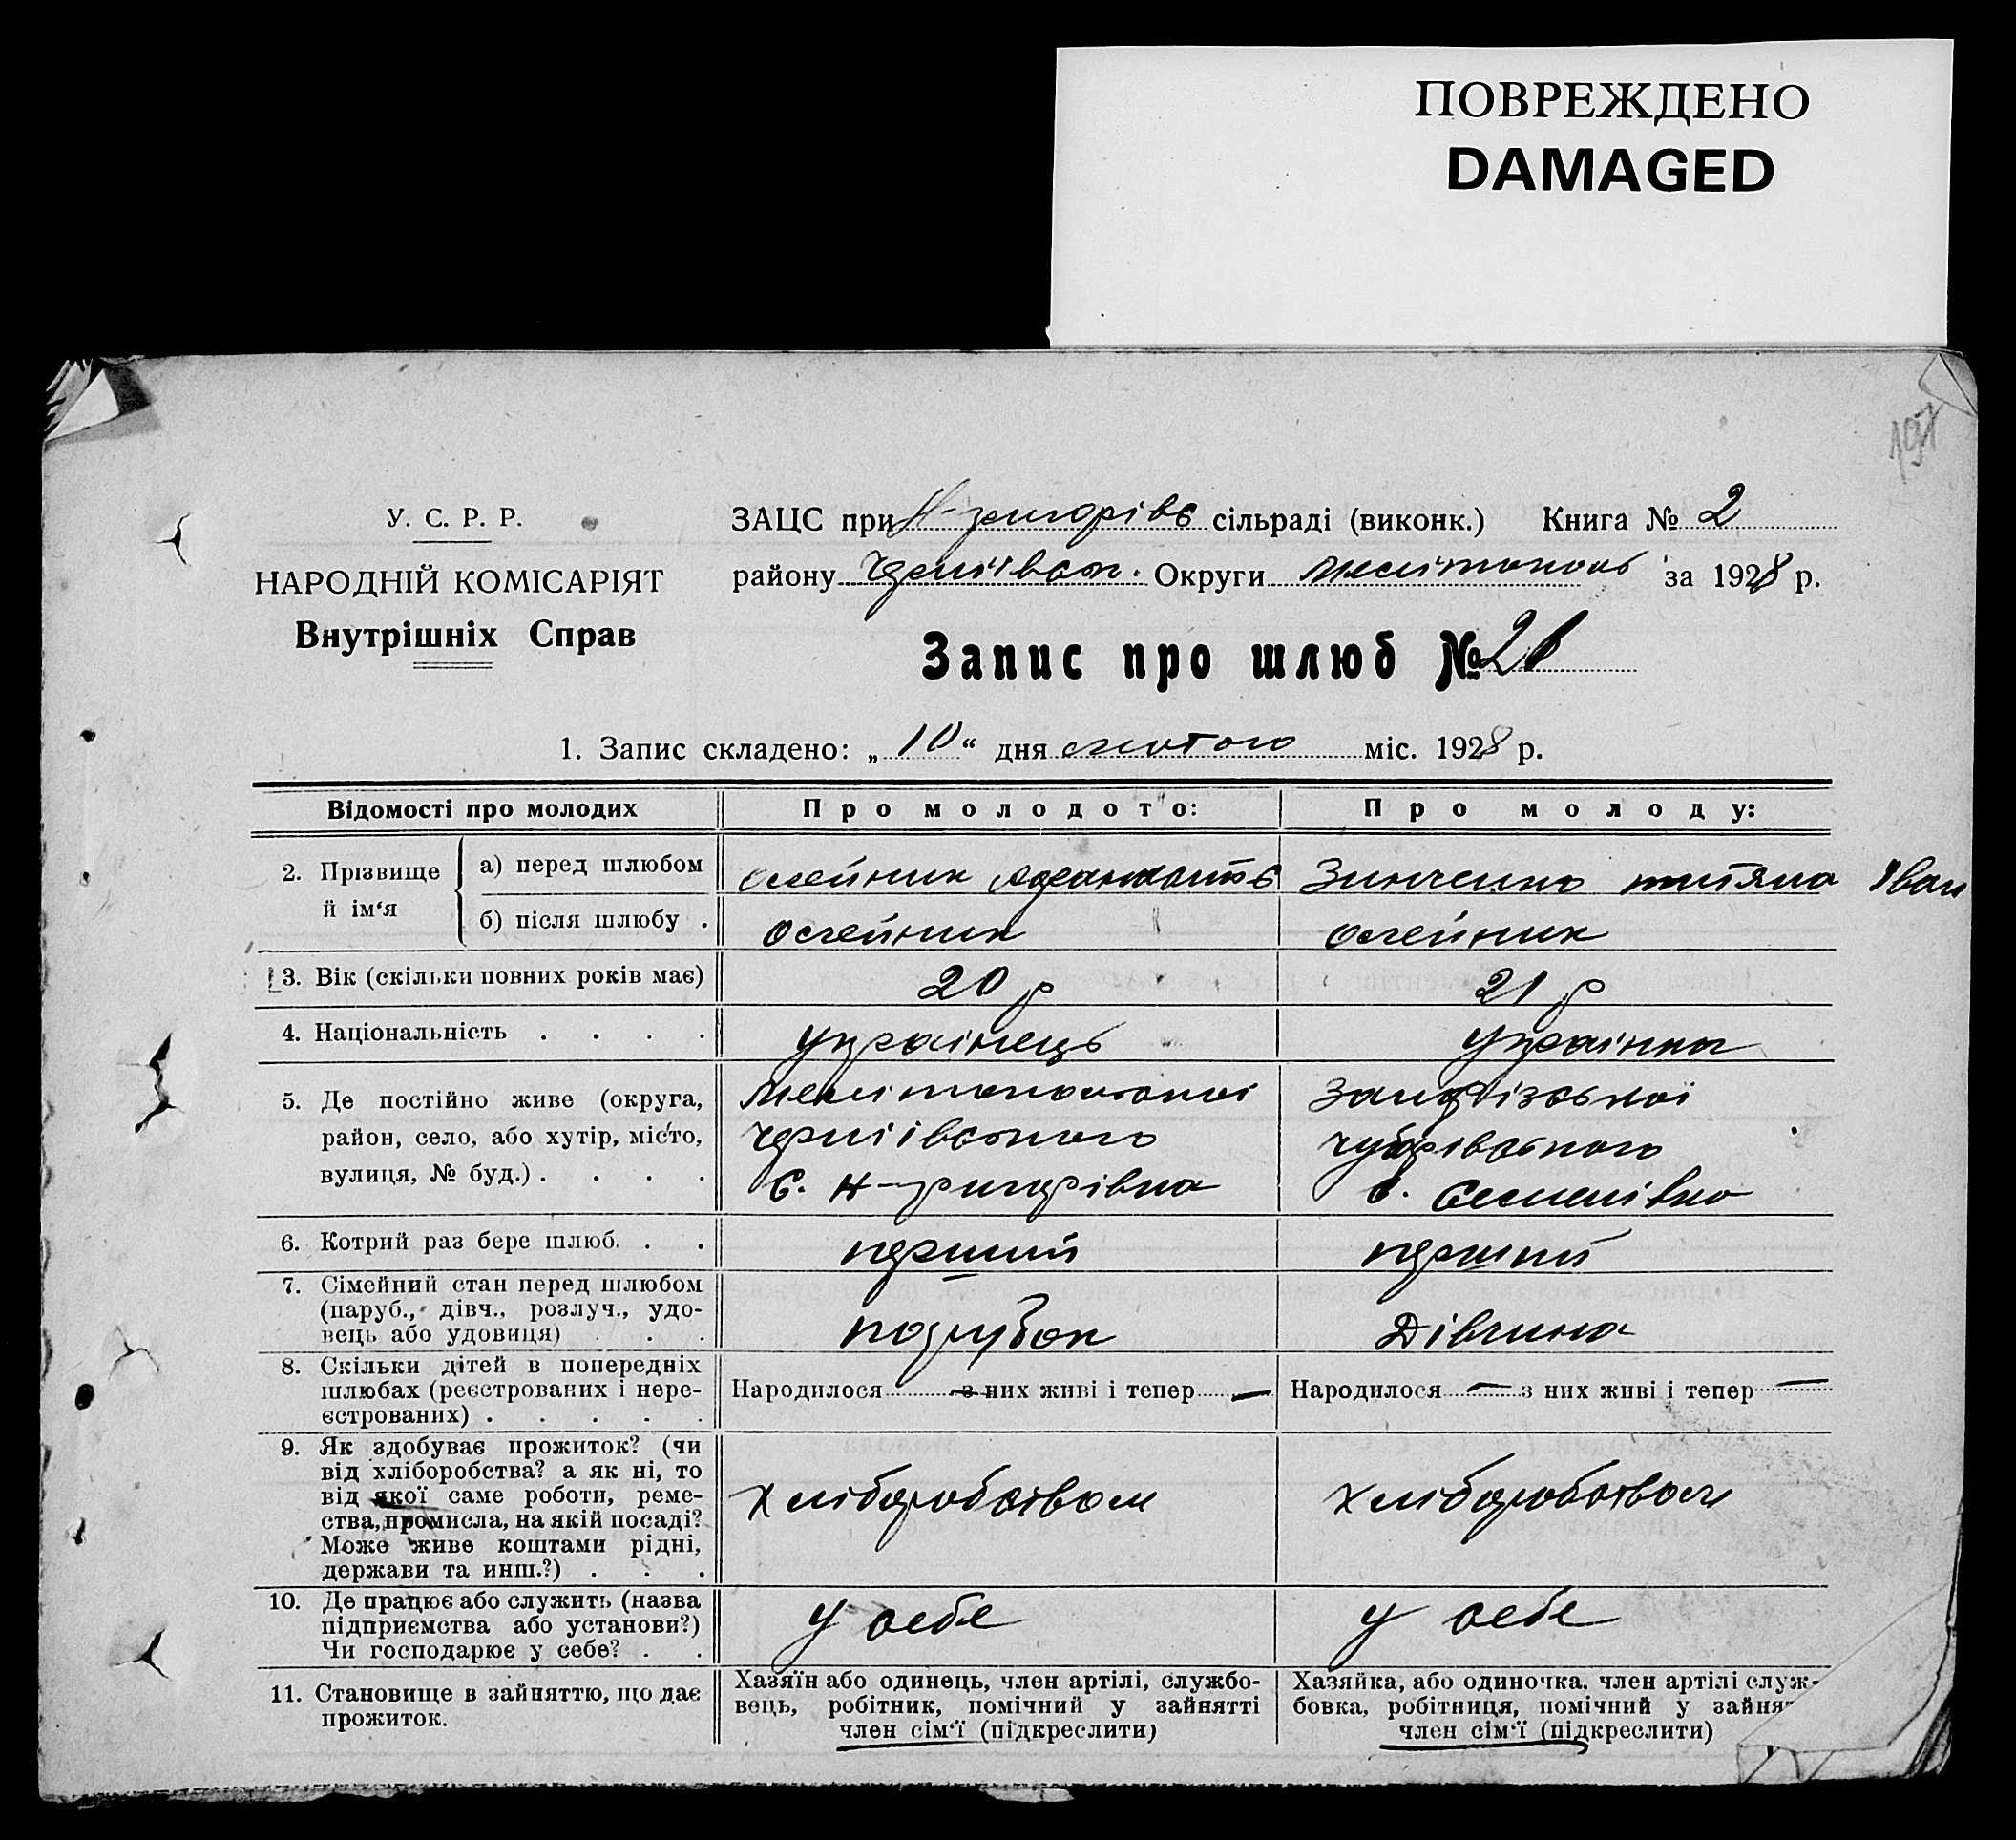 ПОВРЕЖДЕНО
DAMAGED
197
У. С. Р. Р.
НАРОДНІЙ КОМІСАРІЯТ
Внутрішніх Справ
ЗАЦС при Н-григорівс сільраді (виконк.) Книга № 2
району Округи Мелітополь за 1928 р.
Запис про шлюб № 21
1. Запис складено: „10“ дня лютого міс. 1928 р.
Відомості про молодих
Про молодого:
Про молоду:
2. Прізвище й ім‘я
а) перед шлюбом
олейник
Зинченко титяна Іван
б) після шлюбу .
олейник
олейник
3. Вік (скільки повних років має)
20 р
21 р
4. Національність . . . .
українець
українка
5. Де постійно живе (округа,
район, село, або хутір, місто,
вулиця, № буд.) . . . .
Мелітопольської
черніівського
с. Н-григорівка
Запорізської
чубарівського
с. Семенівка
6. Котрий раз бере шлюб. . .
перший
перший
7. Сімейний стан перед шлюбом
(паруб., дівч., розлуч., удо-
вець або удовиця) . . .
парубок
Дівчина
8. Скільки дітей в попередніх
шлюбах (реєстрованих і нере-
єстрованих) . . . . .
Народилося — з них живі і тепер —
Народилося — з них живі і тепер —
9. Як здобуває прожиток? (чи
від хліборобства? а як ні, то
від якої саме роботи, реме-
ства, промисла, на якій посаді?
Може живе коштами рідні,
держави та инш.?) . . .
хліборобством
хліборобством
10. Де працює або служить (назва
підприємства або установи?)
Чи господарює у себе? . .
у себе
у себе
11. Становище в зайняттю, що дає
прожиток.
Хазяїн або одинець, член артілі, службо-
вець, робітник, помічний у зайнятті
член сім‘ї (підкреслити)
Хазяйка, або одиночка, член артілі служ-
бовка, робітниця, помічний у зайня
член сім‘ї (підкреслити)